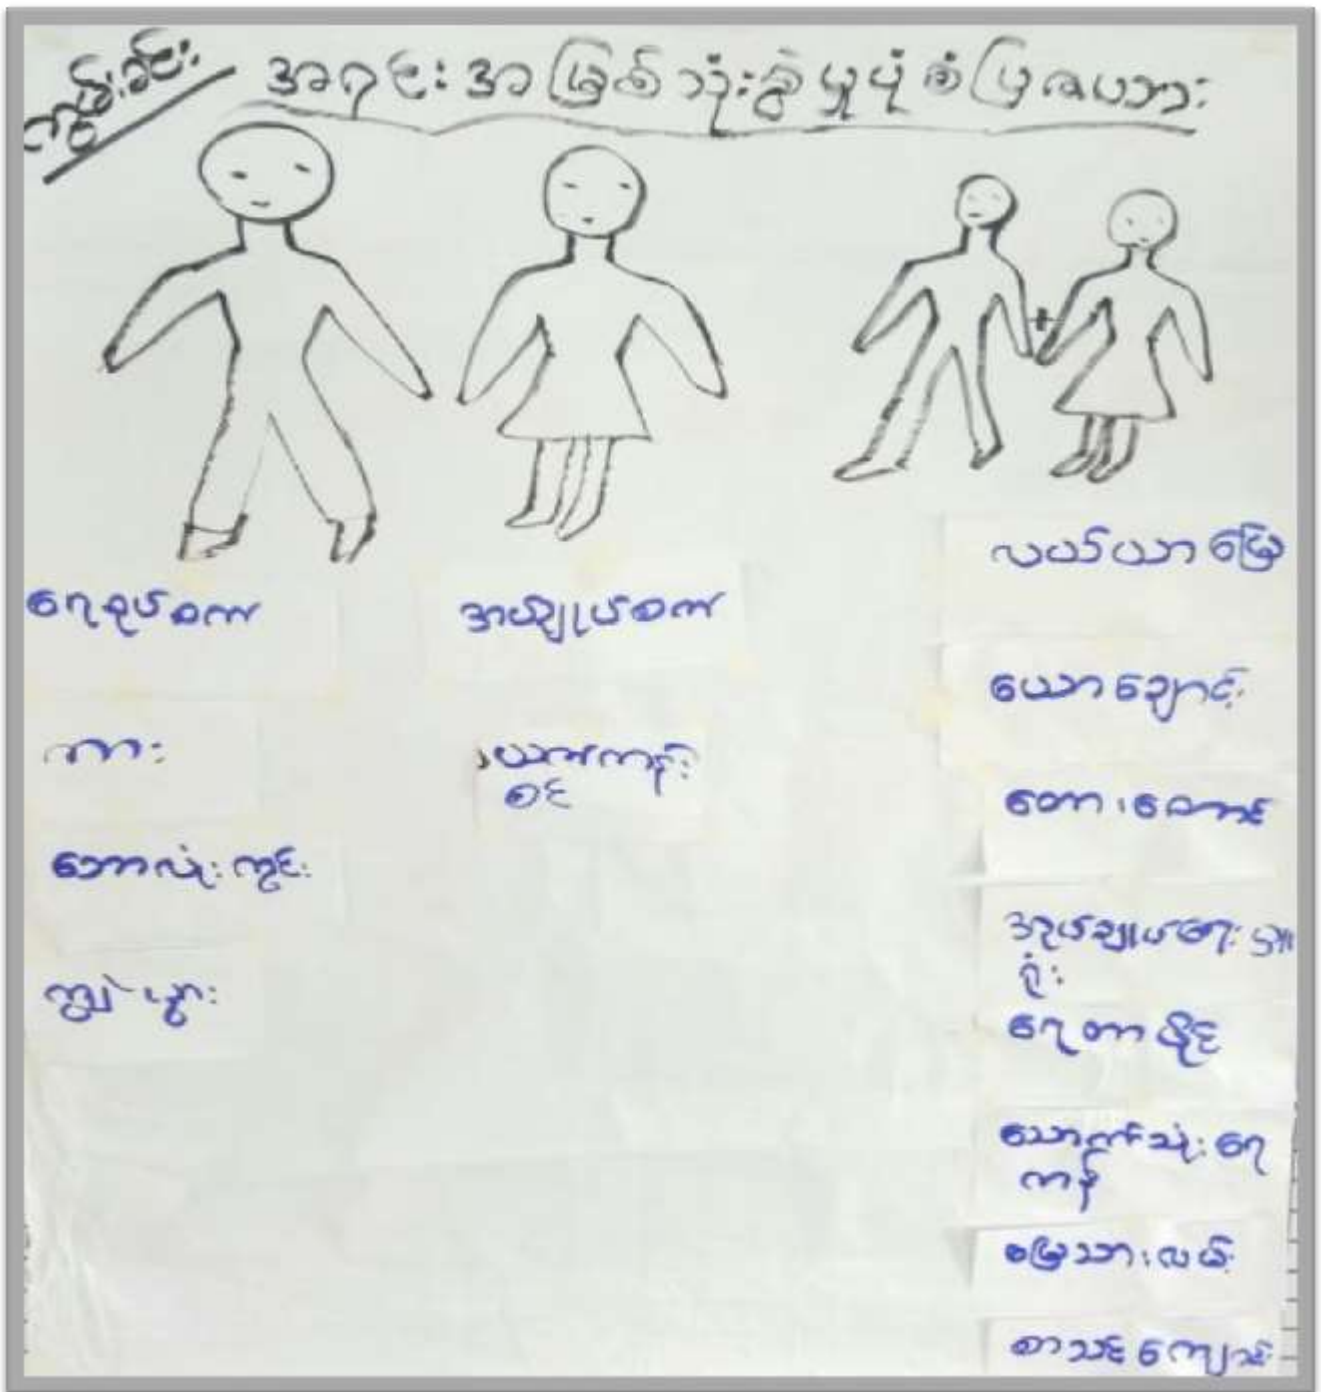 ကျွဲခင်း
အရင်းအမြစ်သုံးစွဲမှုပုံစံပြဇယား
ရေစုပ်စက်
ကား
ဘောလုံးကွင်း
ကျွဲ၊ နွား
အပ်ချုပ်စက်
ယက်ကန်း
စင်
လယ်ယာမြေ
ယောချောင်း
တော၊ တောင်
အုပ်ချုပ်ရေးမှူး
ရုံး
ရေတာပိုင်
သောက်သုံးရေ
ကန်
မြေသားလမ်း
စာသင်ကျောင်း